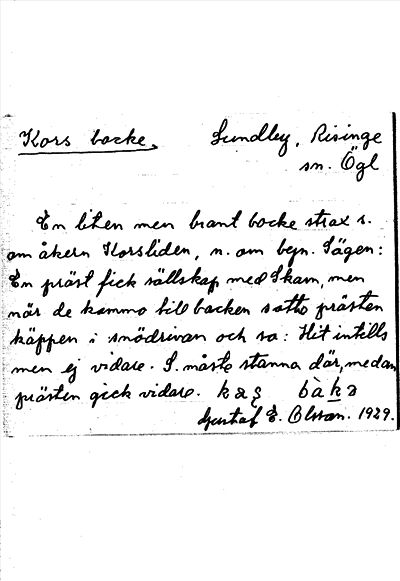 Kors backe.
Lundby, Risinge
sn. Ögl
En liten men brant backe strax s.
om åkern Korsliden, n. om byn. Sägen:
En präst fick sällskap med Skam, men
när de kommo till backen satte prästen
käppen i snödrivan och sa: Hit intills
men ej vidare. S. måste stanna där, medan
prästen gick vidare.
Gustaf E. Olsson. 1929.